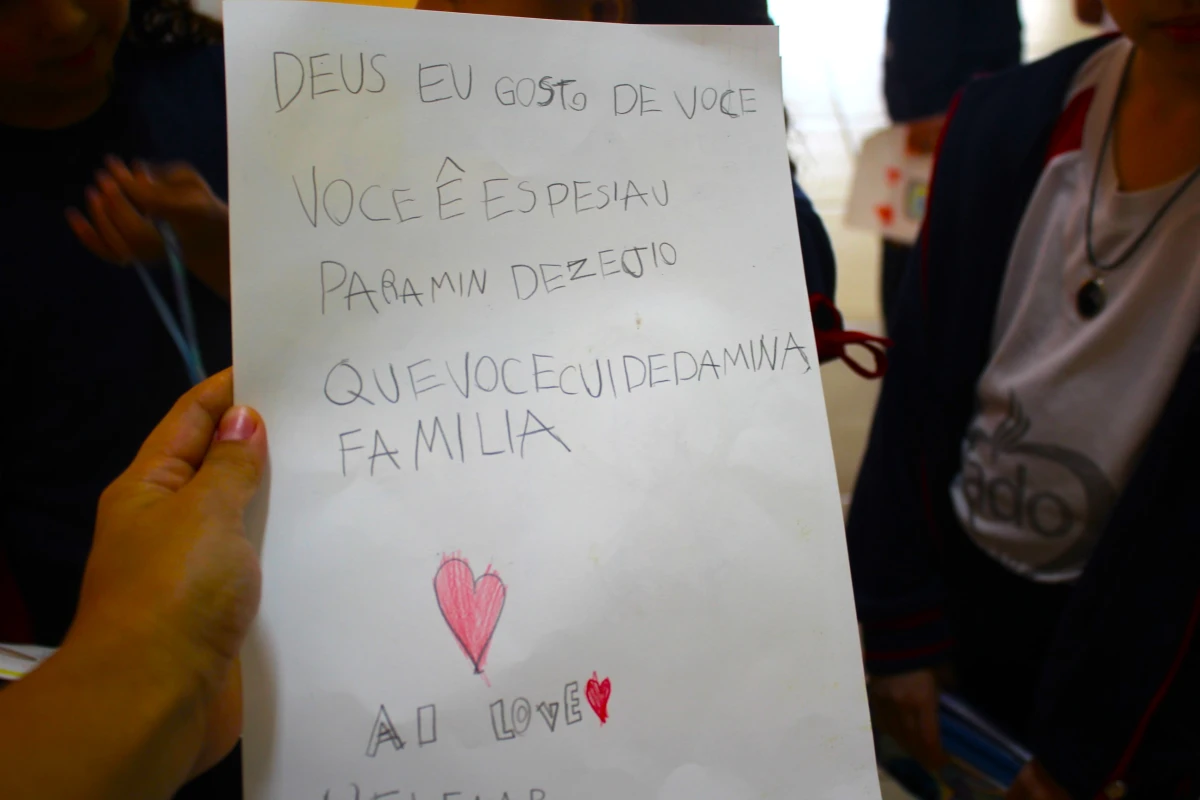 DEUS EU GOSTO DE VOCE
VOCE Ê ESPESIAU
PARAMIN DEZEJIO
QUEVOCECUIDEDAMINA
FAMILIA
AI LOVE
ado